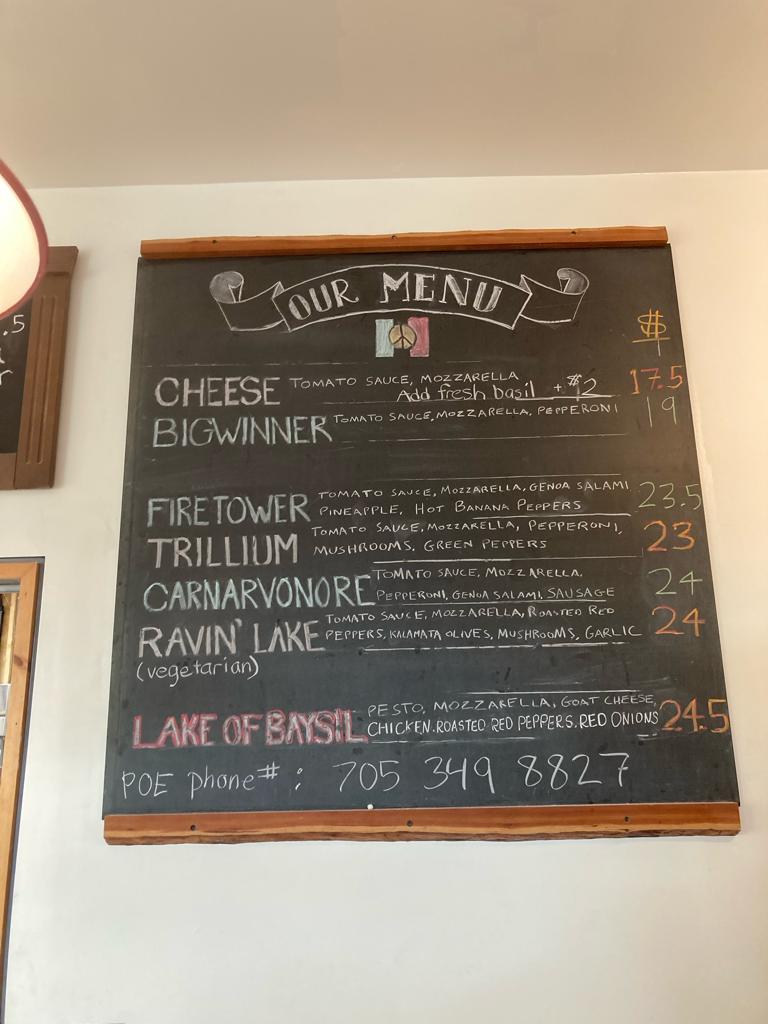 OUR MENU
$
CHEESE TOMATO SAUCE, MOZZARELLA 17.5
Add fresh basil + $2
BIGWINNER TOMATO SAUCE, MOZZARELLA, PEPPERONI 19
FIRETOWER TOMATO SAUCE, MOZZARELLA, GENOA SALAMI 23.5
PINEAPPLE, HOT BANANA PEPPERS
TRILLIUM TOMATO SAUCE, MOZZARELLA, PEPPERONI, 23
MUSHROOMS, GREEN PEPPERS
CARNARVONORE TOMATO SAUCE, MOZZARELLA, 24
PEPPERONI, GENOA SALAMI, SAUSAGE
RAVIN' LAKE TOMATO SAUCE, MOZZARELLA, ROASTED RED 24
PEPPERS, KALAMATA OLIVES, MUSHROOMS, GARLIC
(vegetarian)
LAKE OF BAYSIL PESTO, MOZZARELLA, GOAT CHEESE, 24.5
CHICKEN. ROASTED RED PEPPERS. RED ONIONS
POE phone# : 705 349 8827
.5